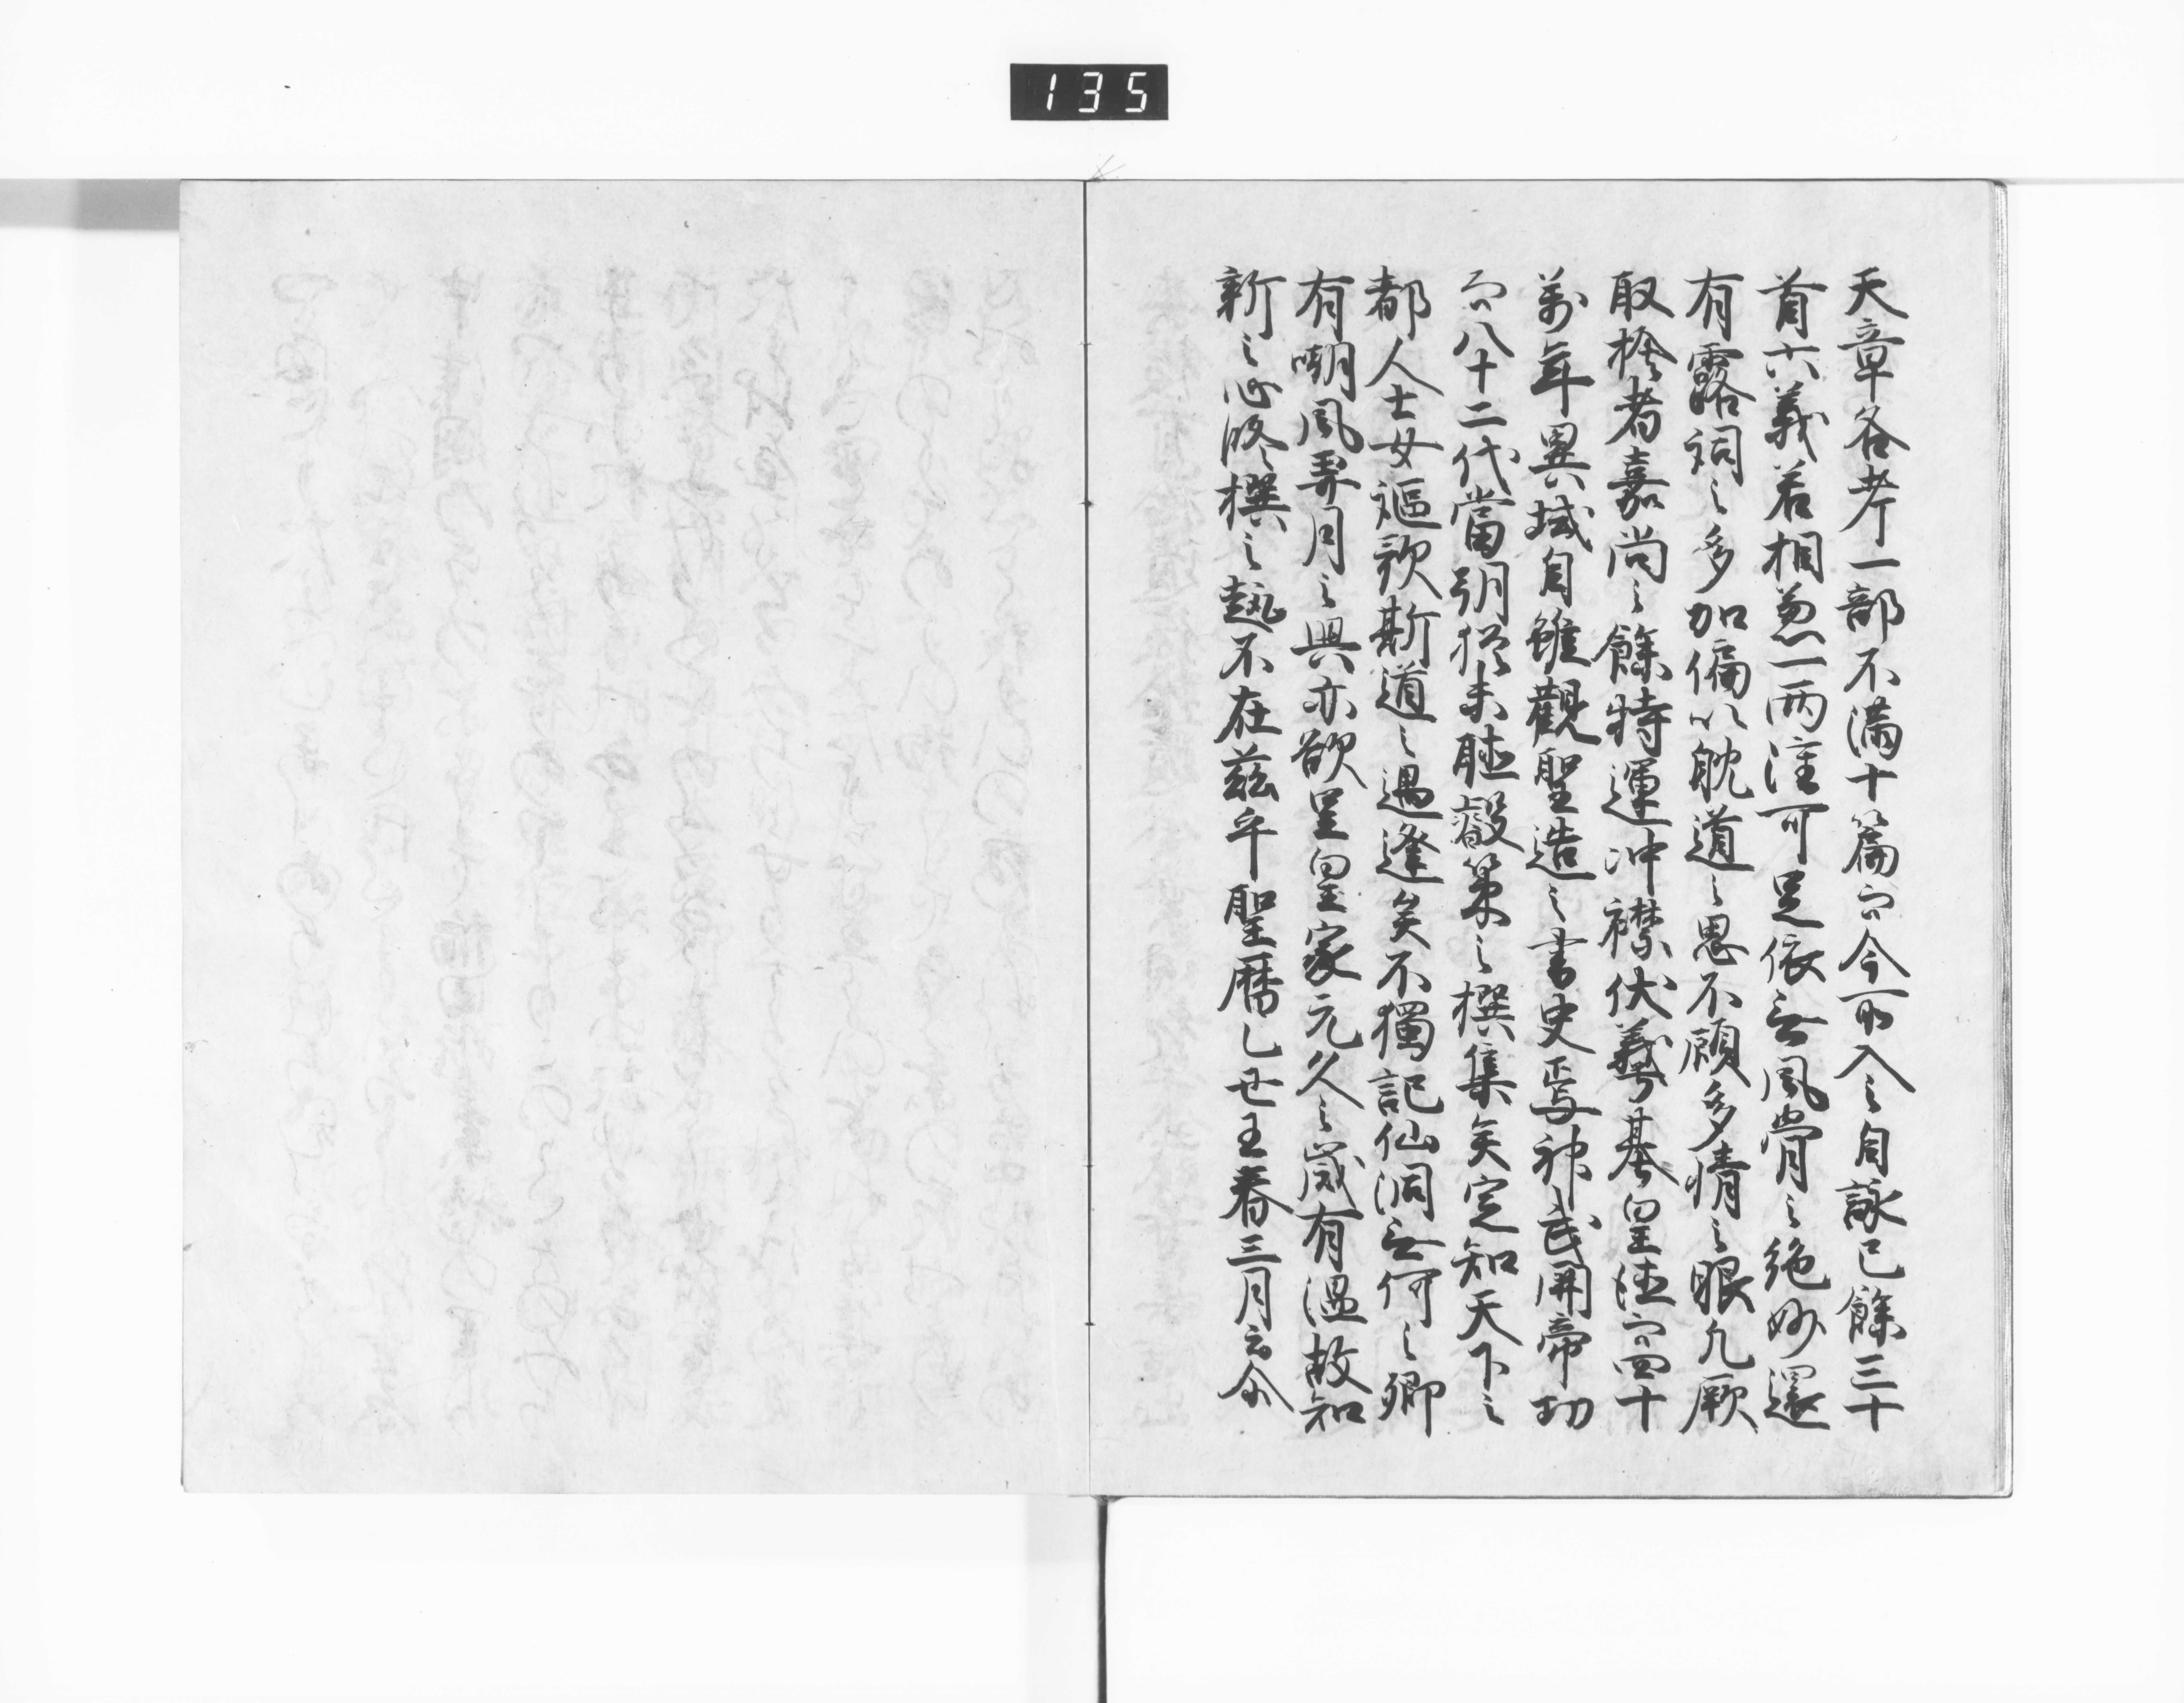 135
天章各考一部不満十篇而今所入之自詠已餘三十
首六義若相兼一両雖可足依無風骨之絶妙還
有露詞之多加偏以耽道之思不顧多情之眼凡厥
取捨者嘉尚之餘特運冲襟伏羲基皇徳而四十
万年異域自雖観聖造之書史焉神武開帝功
而八十二代當朝猶未聴叡策之撰集矣定知天下之
都人士女謳歌斯道之遇逢矣不獨記仙洞無何之郷
有嘲風弄月之興亦欲呈皇家元久之歳有温故知
新之心修撰之趣不在茲乎聖暦乙丑王春三月云尒